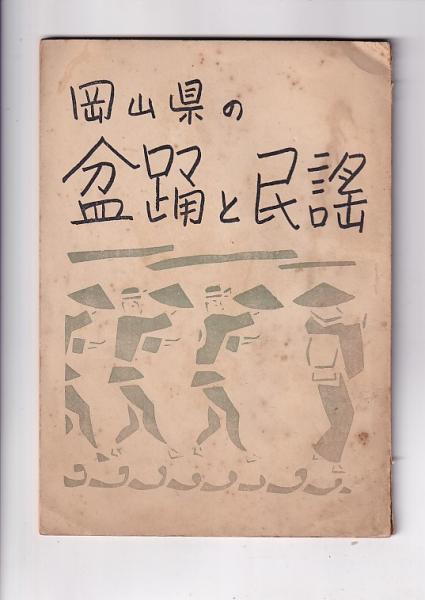 岡山県の
盆踊と民謡